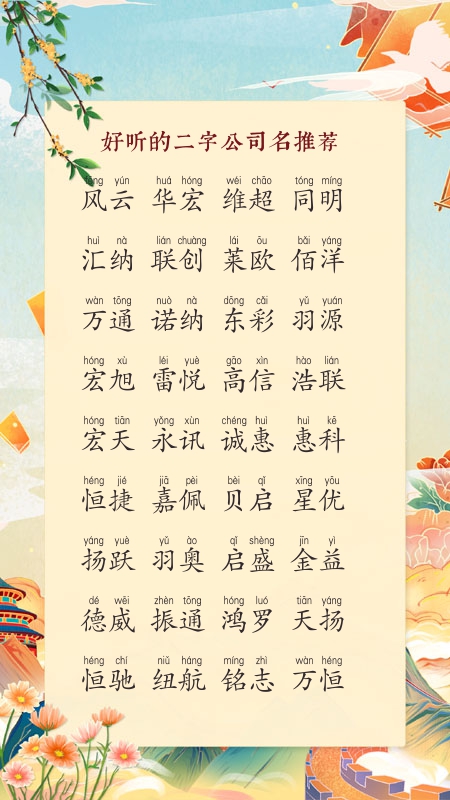 好听的二字公司名推荐
fēng yún huá hóng wéi chāo tóng míng
风云 华宏 维超 同明
huì nà lián chuàng lái ōu bǎi yáng
汇纳 联创 莱欧 佰洋
wàn tōng nuò nà dōng cǎi yǔ yuán
万通 诺纳 东彩 羽源
hóng xù léi yuè gāo xìn hào lián
宏旭 雷悦 高信 浩联
hóng tiān yǒng xùn chéng huì huì kē
宏天 永讯 诚惠 惠科
héng jié jiā pèi bèi qǐ xīng yōu
恒捷 嘉佩 贝启 星优
yáng yuè yǔ ào qǐ shèng jīn yì
扬跃 羽奥 启盛 金益
dé wēi zhèn tōng hóng luó tiān yáng
德威 振通 鸿罗 天扬
héng chí niǔ háng míng zhì wàn héng
恒驰 纽航 铭志 万恒